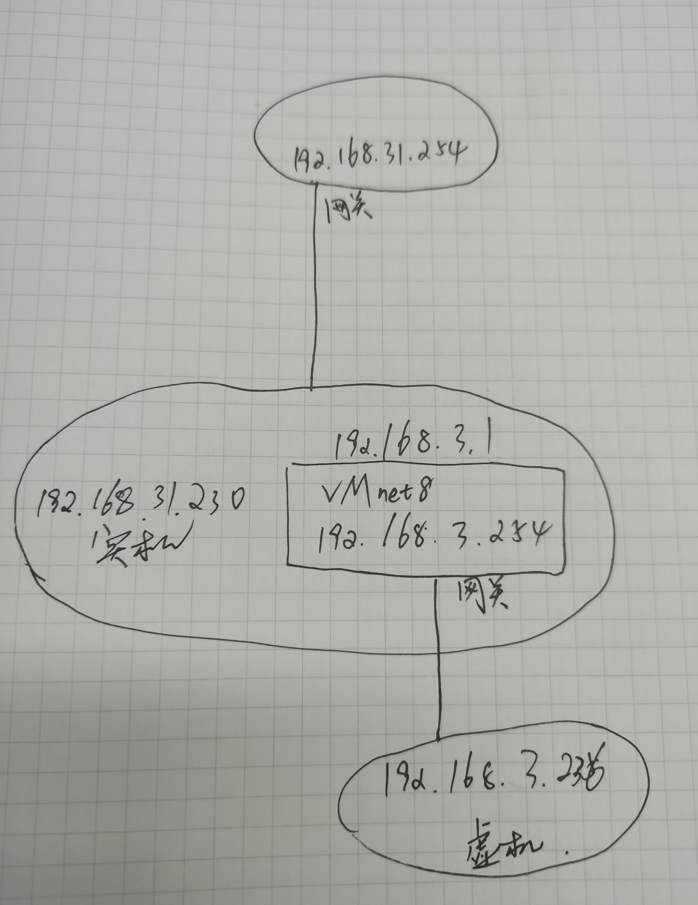 192.168.31.254
网关
192.168.3.1
192.168.31.230
实机
VMnet8
192.168.3.254
网关
虚机.